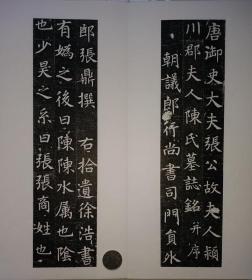 唐御史大夫張公故夫人潁
川郡夫人陳氏墓誌銘并序
朝議郎行尚書司門員外
郎張鼎撰 右拾遺徐浩書
有媯之後曰陳陳水属也陰
也少昊之系曰張張商姓也